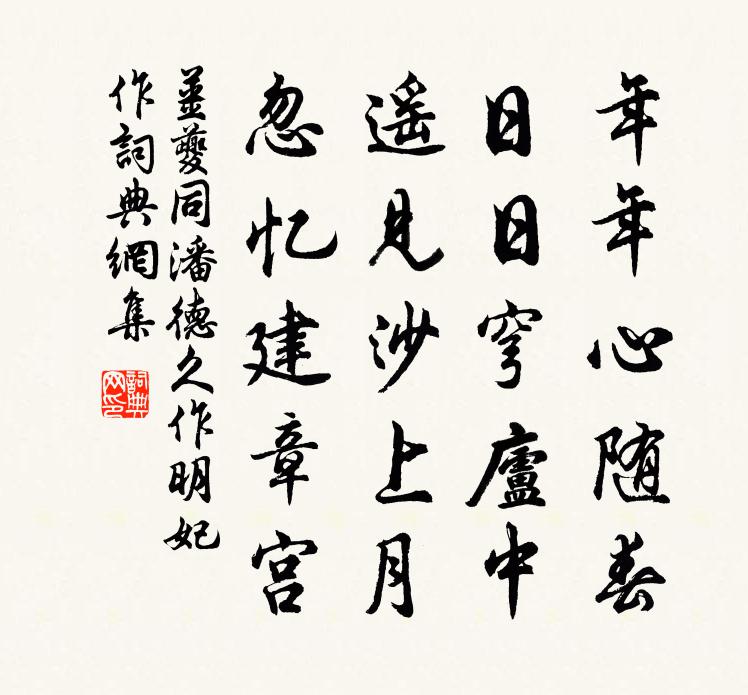 年年心随春
日日穹廬中
遥見沙上月
忽忆建章宫
薑夔同潘德久作明妃
作詞典網集
詞典
网印